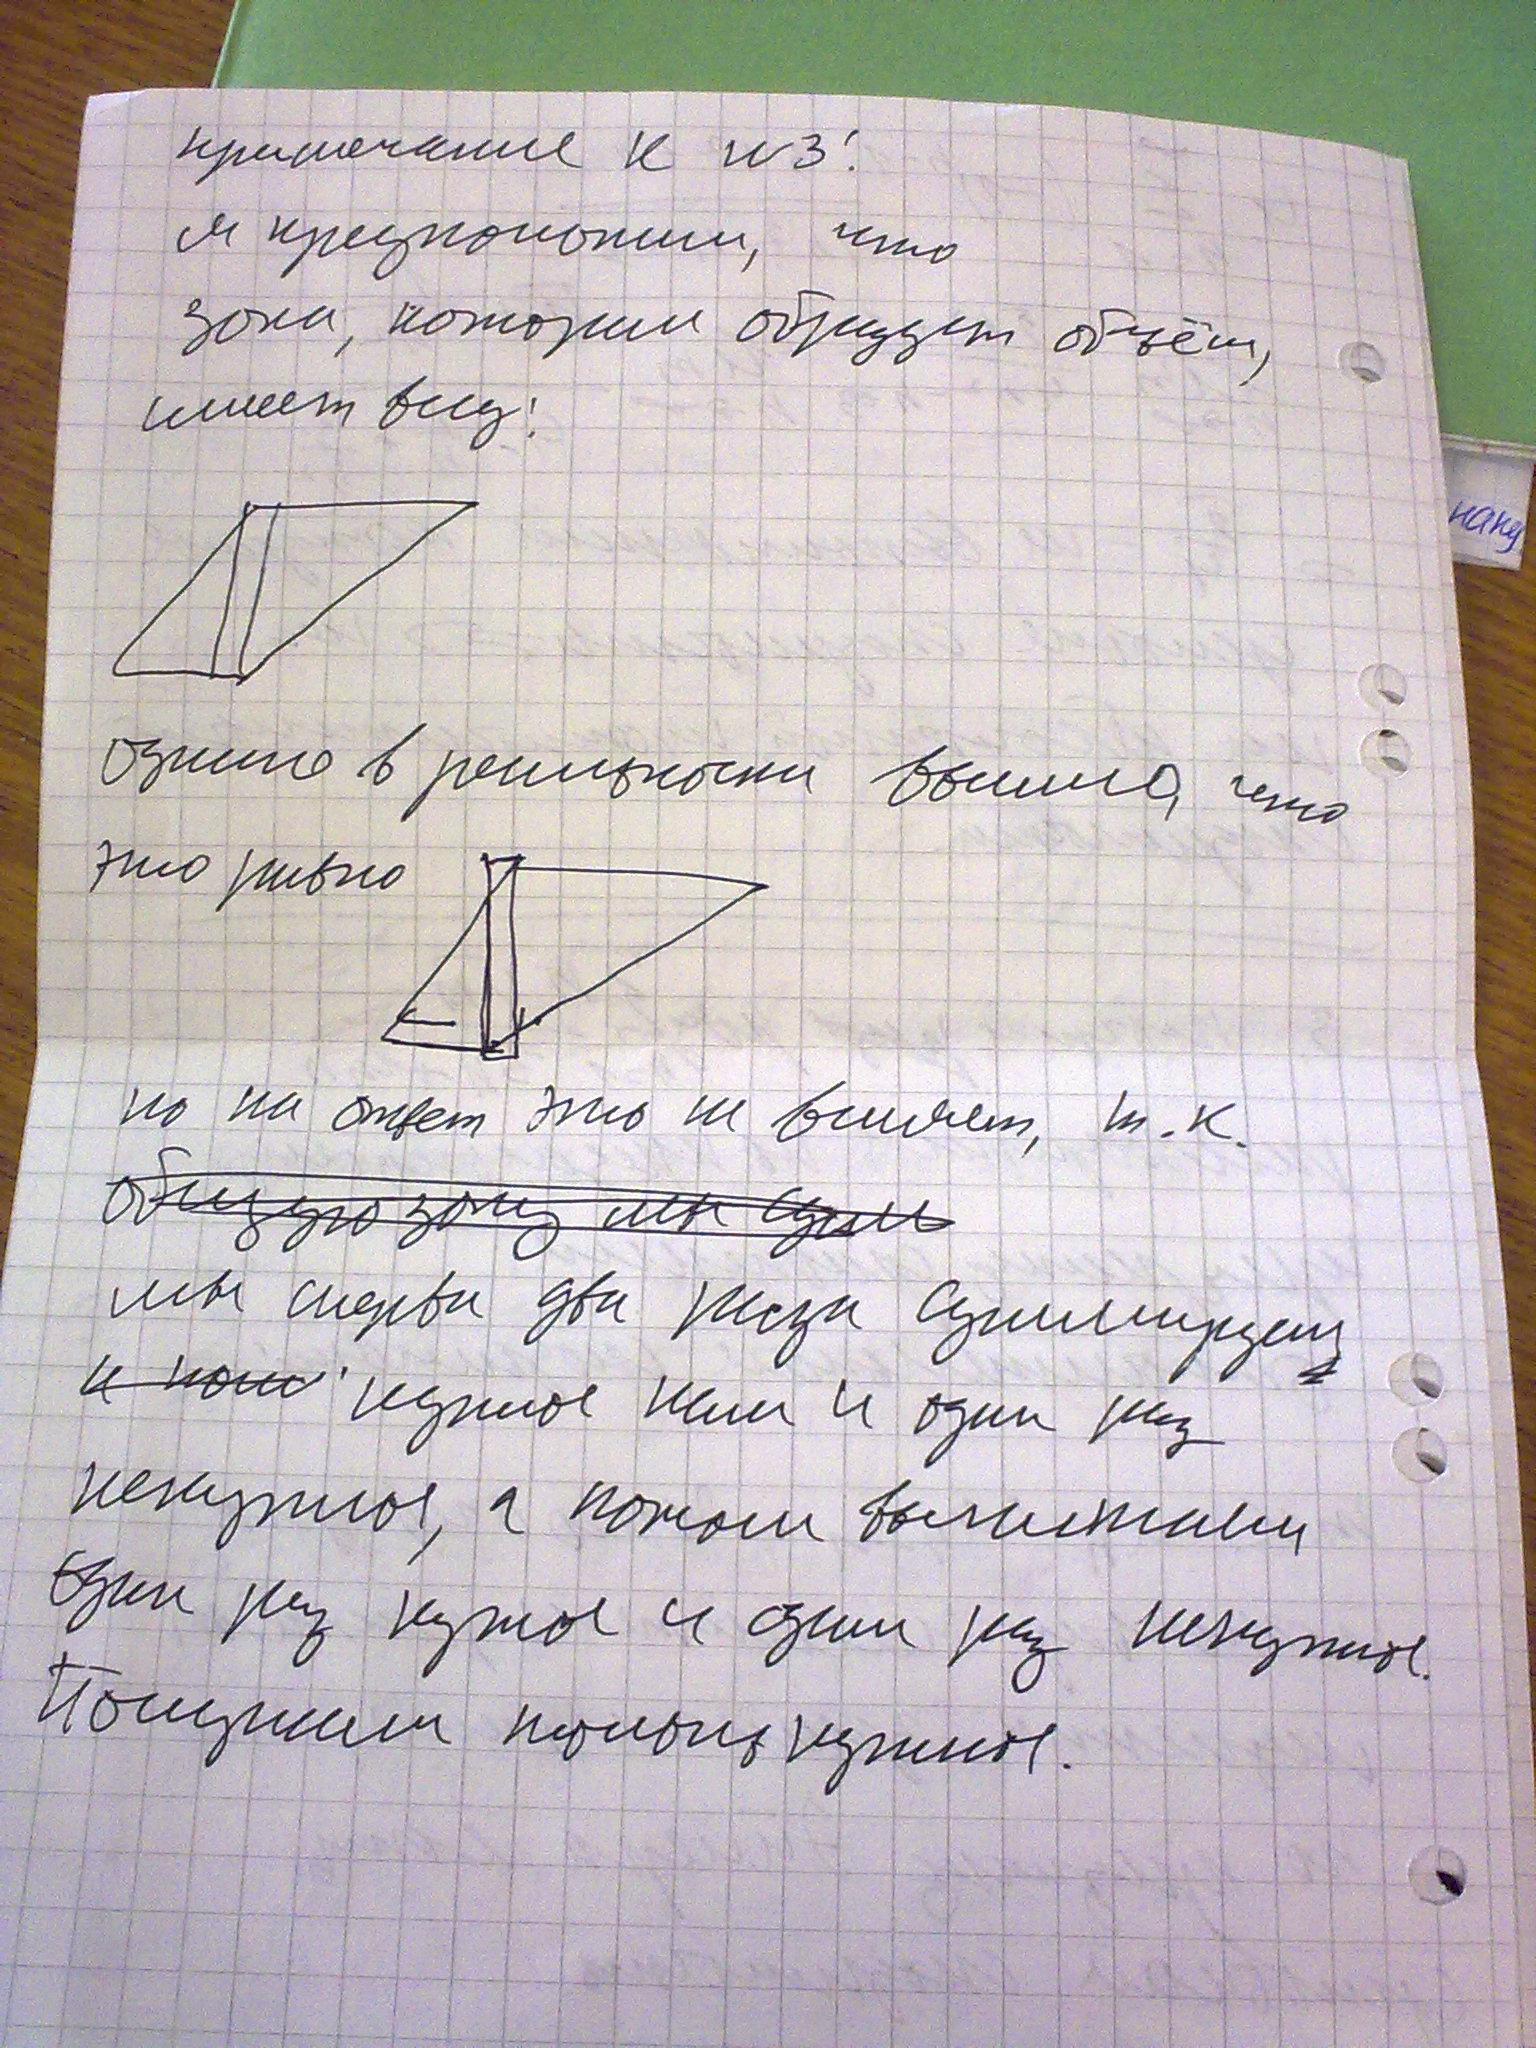 примечание к №3:
я предположил, что
зона, которая образует объём,
имеет вид:
однако в реальности вышло, что
это равно
но на ответ это не влияет, т.к.
общую зону мы сумм
мы сперва два раза суммируем
и пот нужное нам и один раз
ненужное, а потом вычитаем
один раз нужное и один раз ненужное.
Получаем только нужное.